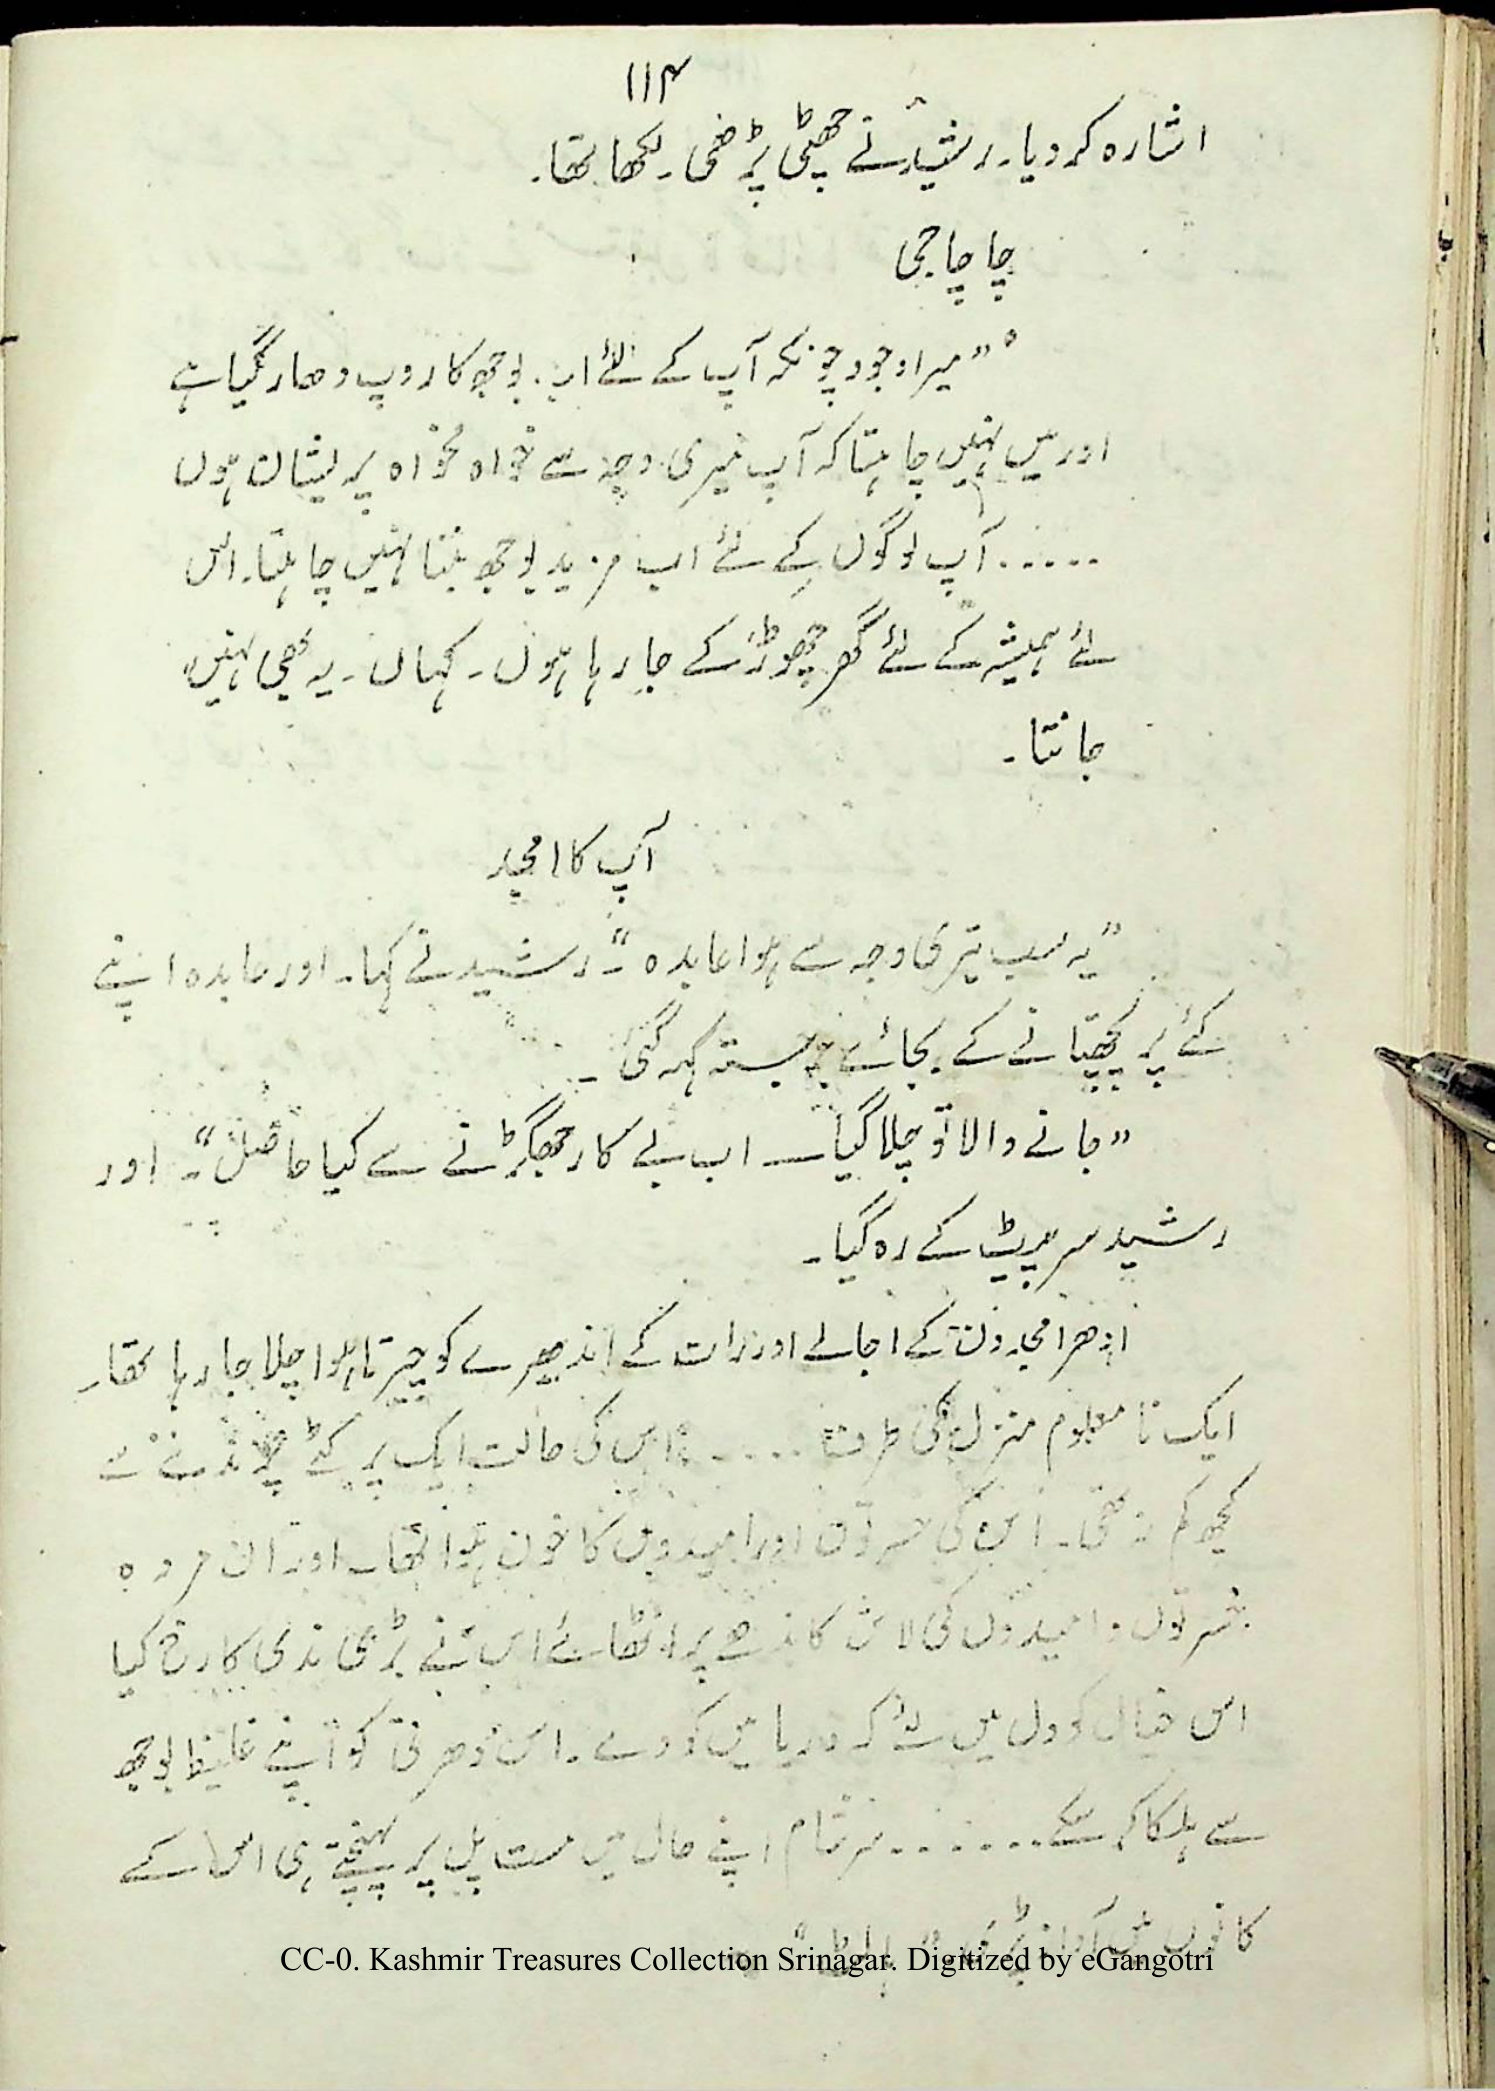 ۱۱۴
اشارہ کر دیا۔ رشید نے چھٹی پڑھی۔ لکھا تھا۔
چاچا جی
”میرا وجود چونکہ آپ کے لئے اب بوجھ کا روپ دھار گیا ہے
اور میں نہیں چاہتا کہ آپ میری وجہ سے خواہ مخواہ پریشان ہوں
..... آپ لوگوں کے لئے اب مزید بوجھ بننا نہیں چاہتا۔ اس
لئے ہمیشہ کے لئے گھر چھوڑ کے جا رہا ہوں۔ کہاں۔ یہ بھی نہیں
جانتا۔
آپ کا امجد
”یہ سب تیری وجہ سے ہوا عابدہ“۔ رشید نے کہا۔ اور عابدہ اپنے
کئے پر پچھتانے کے بجائے برجستہ کہہ گئی۔
”جانے والا تو چلا گیا — اب بے کار جھگڑنے سے کیا حاصل“۔ اور
رشید سر پیٹ کے رہ گیا۔
ادھر امجد دن کے اجالے اور رات کے اندھیرے کو چیرتا ہوا چلا جا رہا تھا۔
ایک نا معلوم منزل کی طرف ..... اس کی حالت ایک پر کٹے پرندے سے
کچھ کم نہ تھی۔ اس کی حسرتوں اور امیدوں کا خون ہوا تھا۔ اور ان مردہ
حسرتوں و امیدوں کی لاش کاندھے پر اٹھائے اس نے بڑی ندی کا رخ کیا
اس خیال کو دل میں لئے کہ دریا میں کود دے۔ اس دھرتی کو اپنے غلیظ بوجھ
سے ہلکا کر سکے....... سرشام اپنے حال میں مست پل پر پہنچتے ہی اس کے
کانوں میں آواز پڑی
CC-0. Kashmir Treasures Collection Srinagar. Digitized by eGangotri